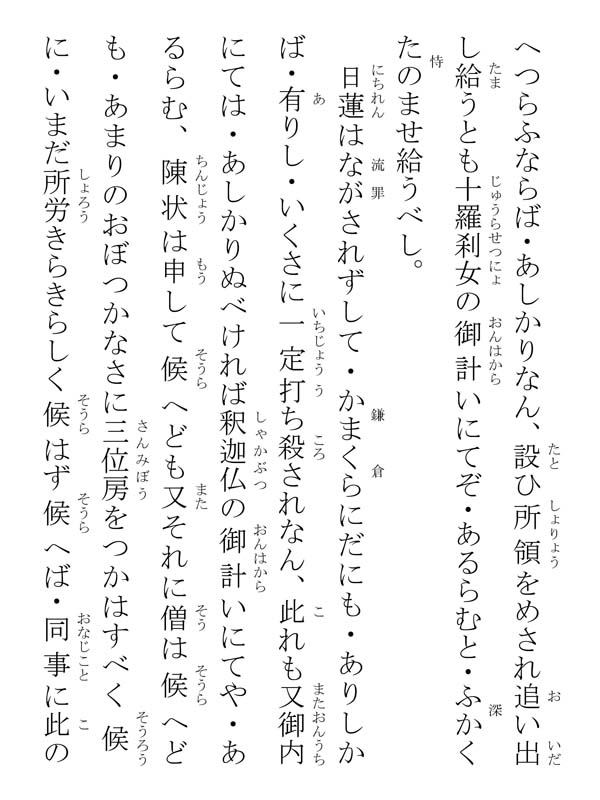 へつらふならば・あしかりなん、設ひ所領をめされ追い出
し給うとも十羅刹女の御計いにてぞ・あるらむと・ふかく
たのませ給うべし。
日蓮はながされずして・かまくらにだにも・ありしか
ば・有りし・いくさに一定打ち殺されなん、此れも又御内
にては・あしかりぬべければ釈迦仏の御計いにてや・あ
るらむ、陳状は申して候へども又それに僧は候へど
も・あまりのおぼつかなさに三位房をつかはすべく候
に・いまだ所労きらきらしく候はず候へば・同事に此の